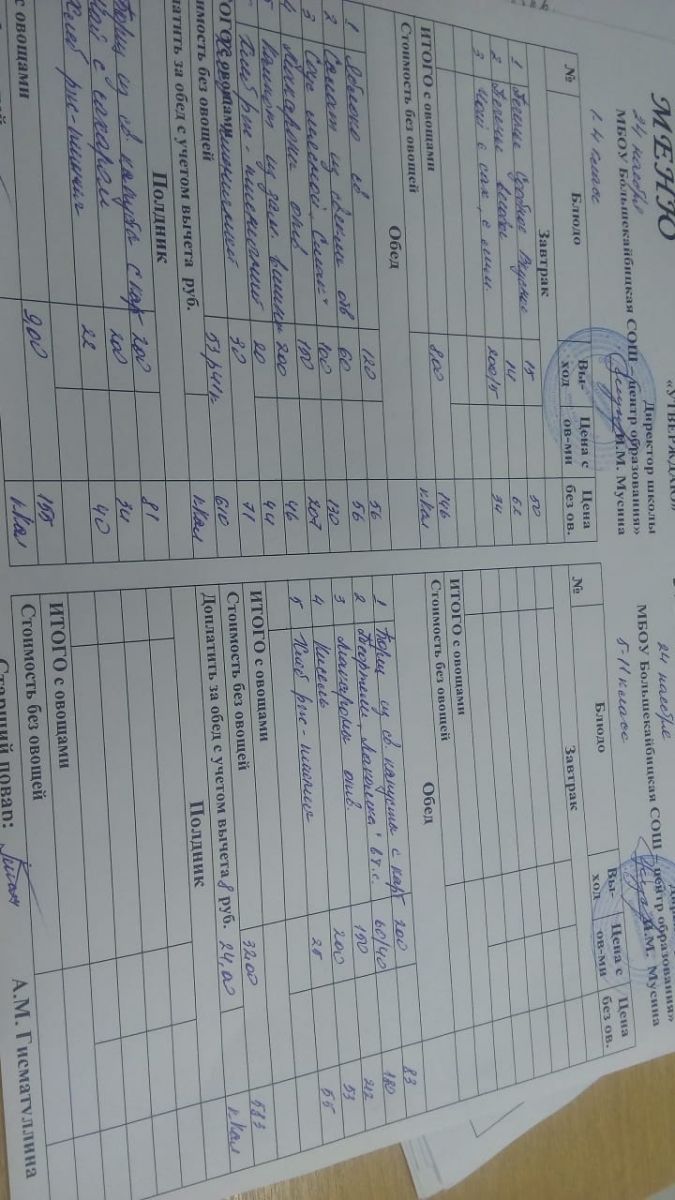 МЕНЮ
«УТВЕРЖДАЮ»
Директор школы
24 ноября МБОУ Большекайбицкая СОШ – центр образования»
И.М. Мусина
1-4 класс
№ Блюдо Вы-ход Цена с ов-ми Цена без ов.
Завтрак
1 15 50
2 14 62
3 Чай с сах. с лим. 200/5 34
ИТОГО с овощами 8,00 146
Стоимость без овощей ккал
Обед
1 Яблоко св 120 56
2 Салат из свеклы отв 60 56
3 100 130
4 Макароны отв 150 207
5 Компот из 200 46
Хлеб рже-пшеничный 20 44
30 71
ИТОГО с овощами 53р41к 610
Стоимость без овощей ккал
Доплатить за обед с учетом вычета руб.
Полдник
Борщ из св капусты с кар 200 81
Чай с сахаром 200 34
Хлеб рже-пшенич 22 40
с овощами 900 155
ккал
24 ноября
МБОУ Большекайбицкая СОШ центр образования»
И.М. Мусина
5-11 класс
№ Блюдо Вы-ход Цена с ов-ми Цена без ов.
Завтрак
ИТОГО с овощами
Стоимость без овощей
Обед
1 Борщ из св. капусты с карт 200 83
2 "Лакомка" в т.с. 60/40 180
3 Макароны отв. 150 212
4 Кисель 200 53
5 Хлеб рже-пшенич 25 55
ИТОГО с овощами 32.00 583
Стоимость без овощей ккал
Доплатить за обед с учетом вычета 8 руб. 24,00
Полдник
ИТОГО с овощами
Стоимость без овощей
Старший повар: А.М. Гисматуллина